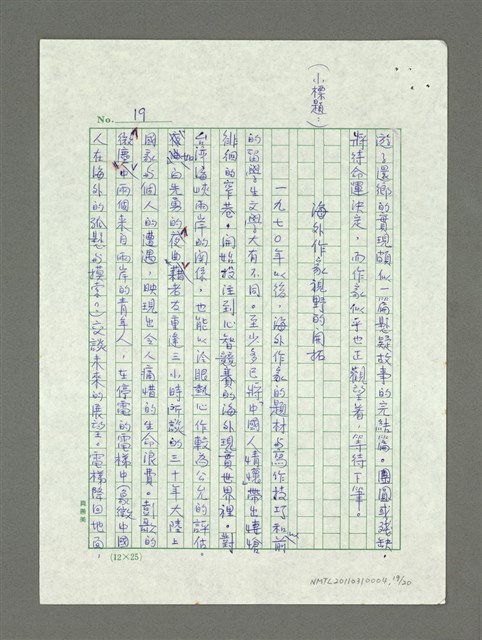 No. 19
(小標題:)
於了還鄉的實現頗似一篇懸疑故事的完結篇。團圓或殘缺,
將待命運決定,而作家似乎也正觀望著,等待下筆。
海外作家視野的開拓
一九七〇年以後,海外作家的題材與寫作技巧和前
的留學生文學大有不同。至少多已將「中國人情懷」帶出悽愴
徘徊的窄巷。開始投注到心智競賽的海外現實世界裡。對
台灣海峽兩岸的關係,也能以冷眼熱心作較為公允的評估。
的先勇的夜曲藉著者友重逢三小時所談的三十年大陸上
國家與個人的遭遇,映現出令人痛惜的生命浪費。彭歌的
微塵中兩個來自兩岸的青年人,在停電的電梯中(象徵中國
人在海外的孤懸與摸索。)交談未來的展望。電梯降回地面,
(12×25)
NMTL20110310004, 19/20